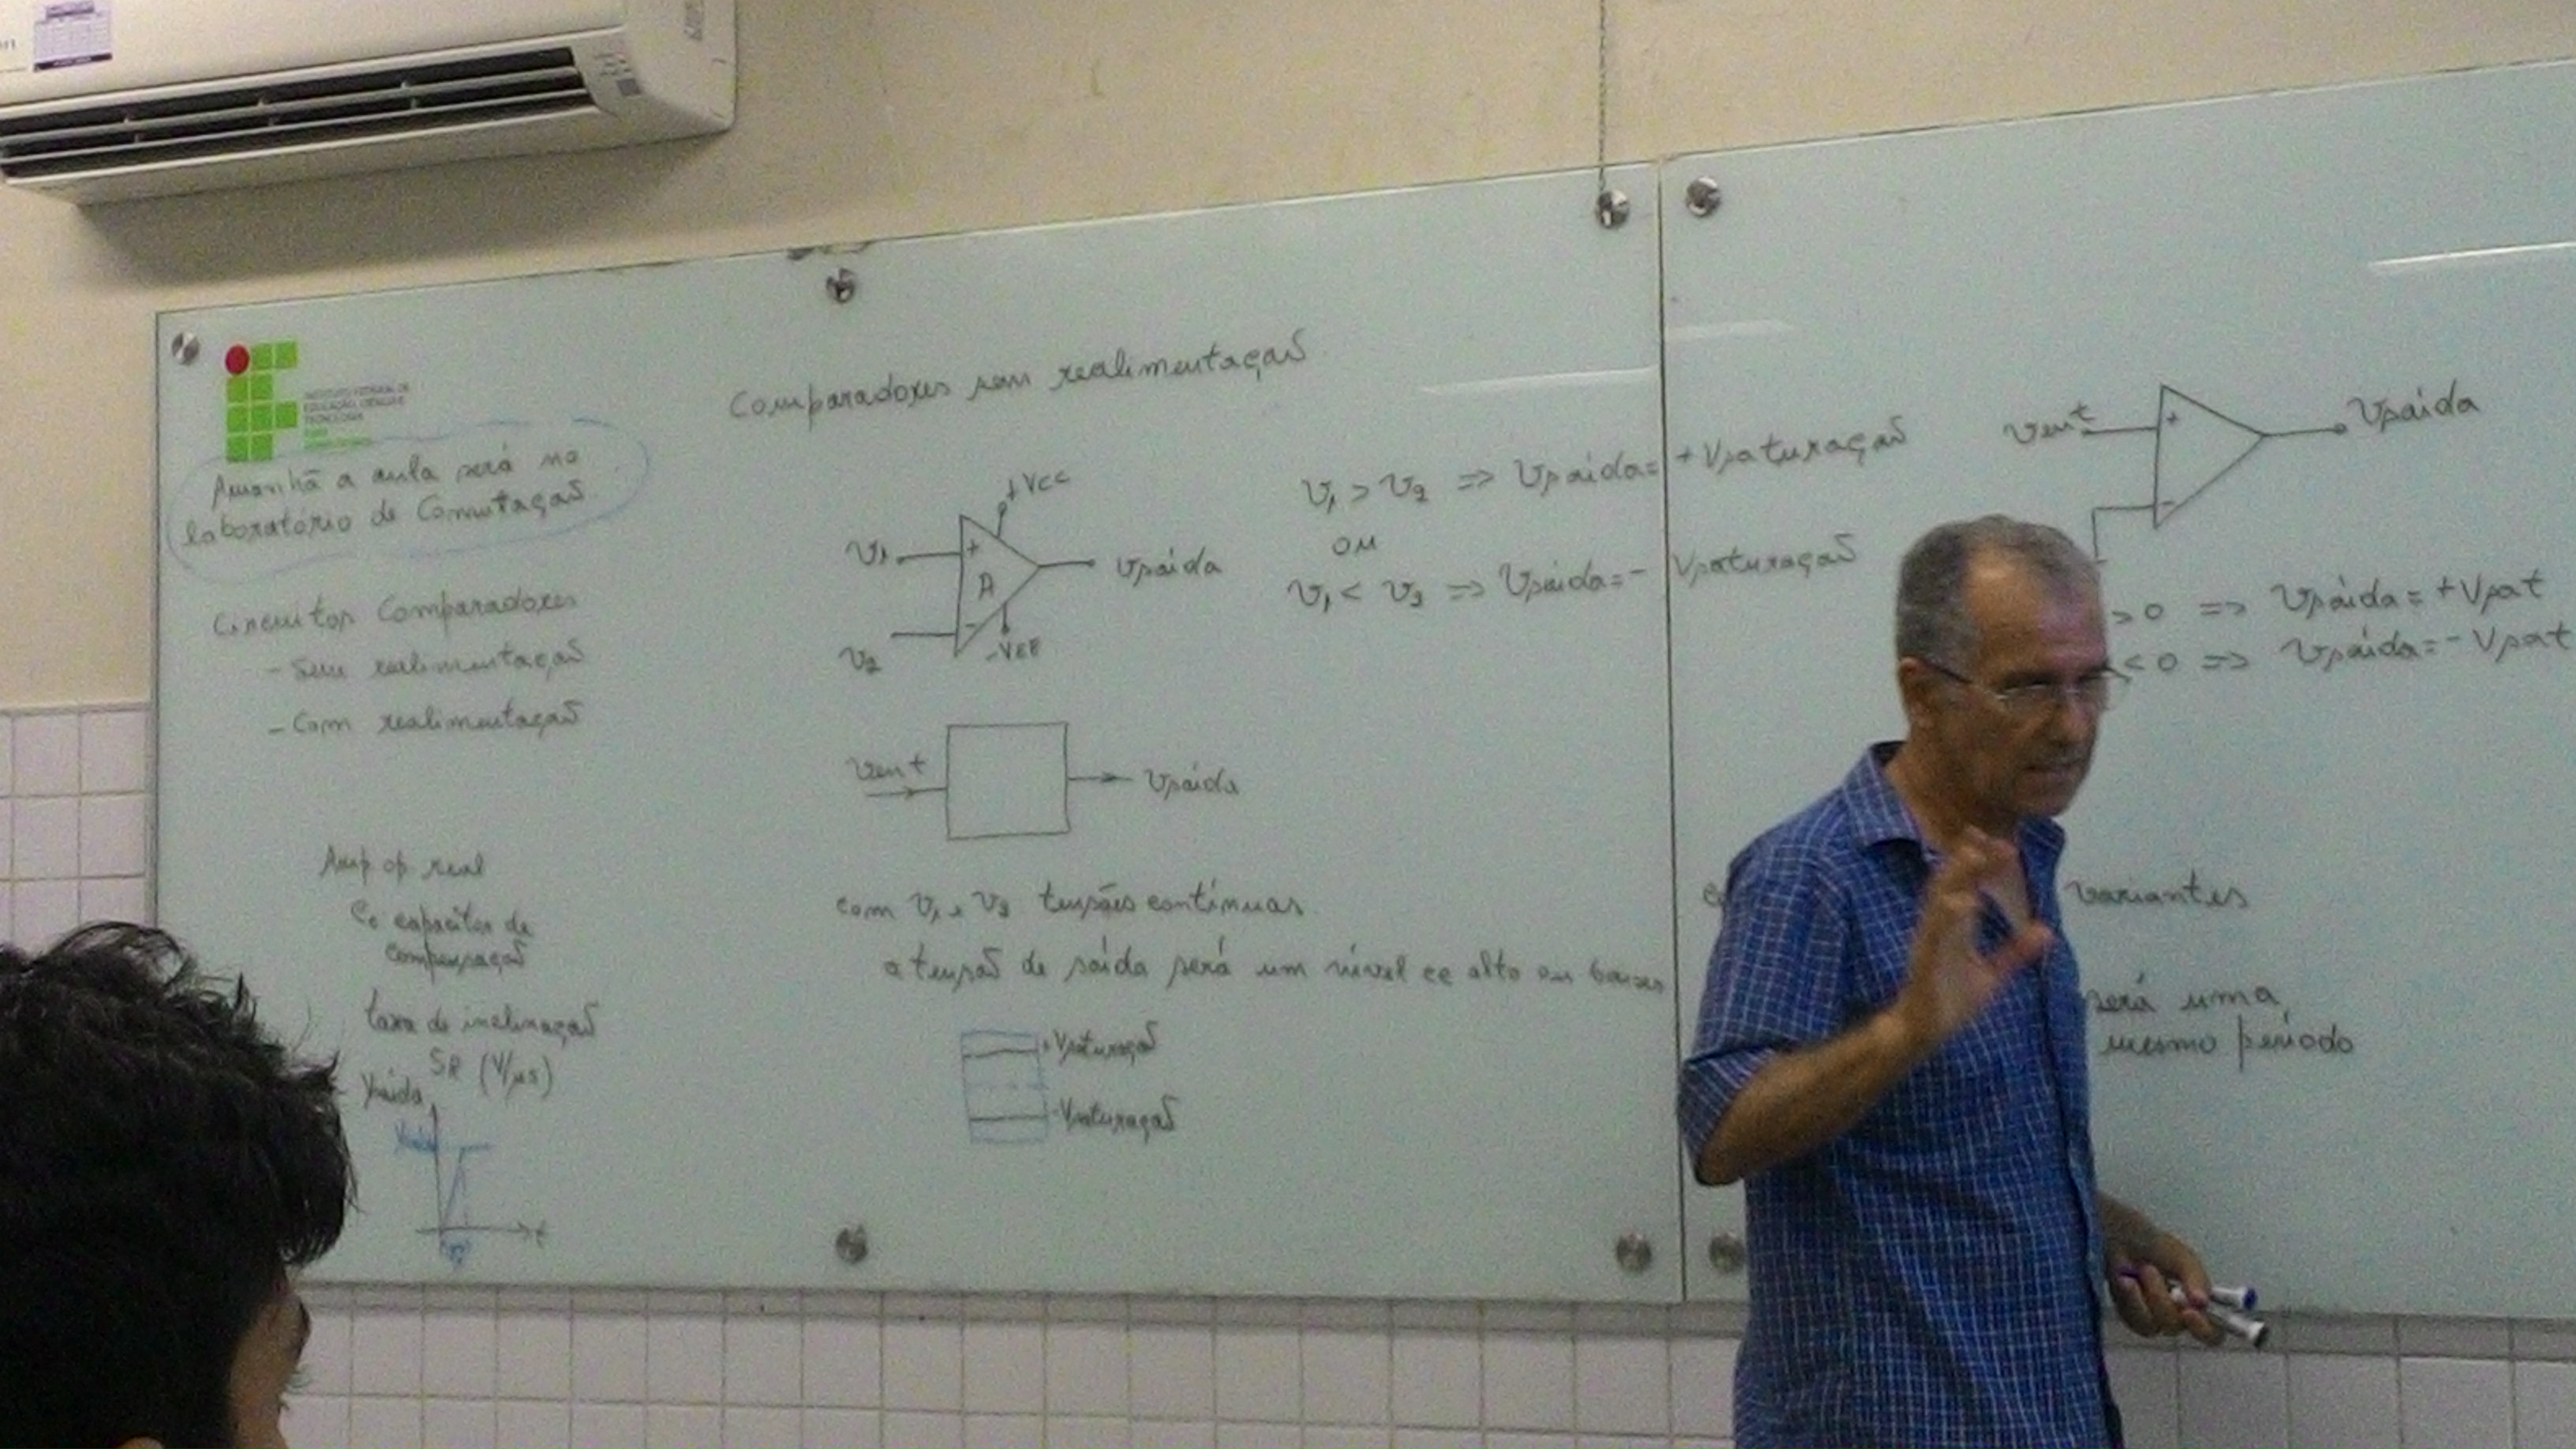 INSTITUTO FEDERAL DE
EDUCAÇÃO, CIÊNCIA E
TECNOLOGIA
Amanhã a aula será no
laboratório de Comutação
Circuitos Comparadores
- Sem realimentação
- Com realimentação
Amp op real
Cc capacitor de
compensação
taxa de inclinação
SR (V/µs)
Vsaída
t
Comparadores sem realimentação
+Vcc
V1
+
A
Vsaída
-
V2
-VEE
V1 > V2 => Vsaída = + Vsaturação
ou
V1 < V2 => Vsaída = - Vsaturação
Vent
Vsaída
com V1 e V2 tensões contínuas.
a tensão de saída será um nível cc alto ou baixo
+Vsaturação
-Vsaturação
Vent
+
Vsaída
-
>0 => Vsaída = +Vsat
<0 => Vsaída = -Vsat
variantes
será uma
mesmo período